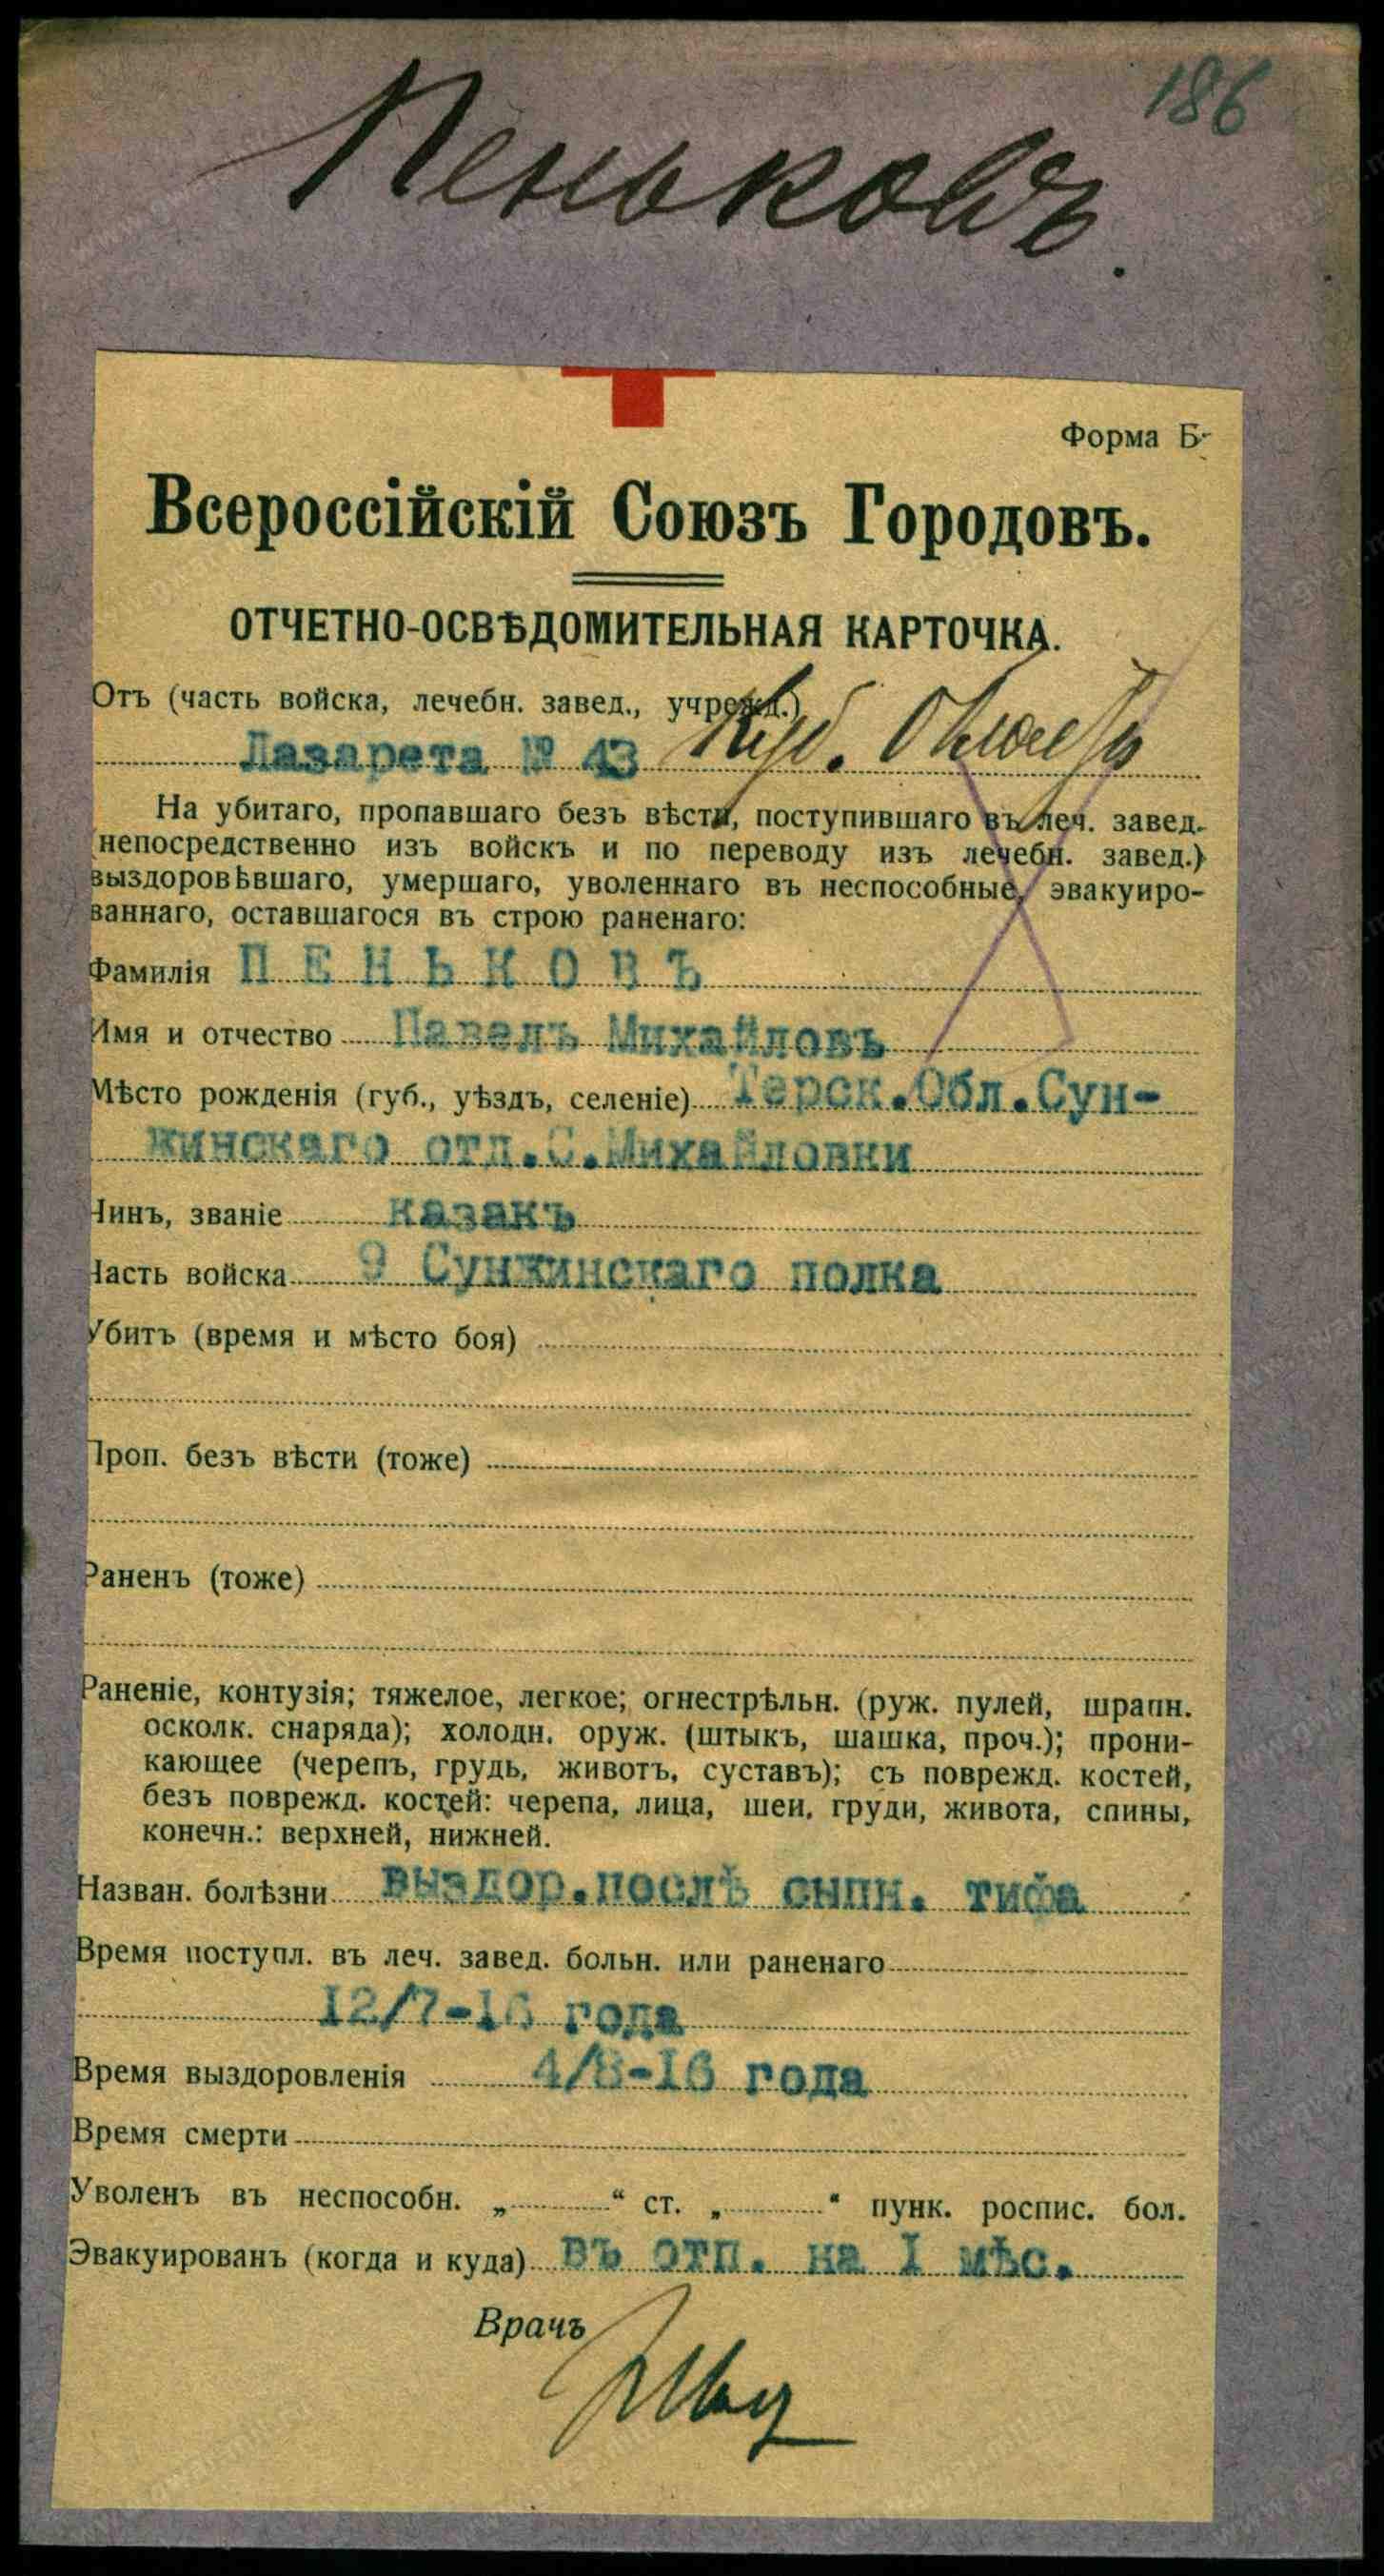 186
Пеньковъ.
Форма Б
Всероссійскій Союзъ Городовъ.
ОТЧЕТНО-ОСВѢДОМИТЕЛЬНАЯ КАРТОЧКА.
Отъ (часть войска, лечебн. завед., учрежд.)
Лазарета № 43
На убитаго, пропавшаго безъ вѣсти, поступившаго въ леч. завед.
(непосредственно изъ войскъ и по переводу изъ лечебн. завед.)
выздоровѣвшаго, умершаго, уволеннаго въ неспособные, эвакуиро-
ваннаго, оставшагося въ строю раненаго:
Фамилія ПЕНЬКОВЪ
Имя и отчество Павелъ Михайловъ
Мѣсто рожденія (губ., уѣздъ, селеніе) Терск.Обл.Сун-
жинскаго отд.С.Михайловки
Чинъ, званіе казакъ
Часть войска 9 Сунжинскаго полка
Убитъ (время и мѣсто боя)
Проп. безъ вѣсти (тоже)
Раненъ (тоже)
Раненіе, контузія; тяжелое, легкое; огнестрѣльн. (руж. пулей, шрапн.
осколк. снаряда); холодн. оруж. (штыкъ, шашка, проч.); прони-
кающее (черепъ, грудь, животъ, суставъ); съ поврежд. костей,
безъ поврежд. костей: черепа, лица, шеи, груди, живота, спины,
конечн.: верхней, нижней.
Назван. болѣзни выздор.послѣ сыпн. тифа
Время поступл. въ леч. завед. больн. или раненаго
12/7-16 года
Время выздоровленія 4/8-16 года
Время смерти
Уволенъ въ неспособн. „ “ ст. „ “ пунк. роспис. бол.
Эвакуированъ (когда и куда) въ отп. на I мѣс.
Врачъ